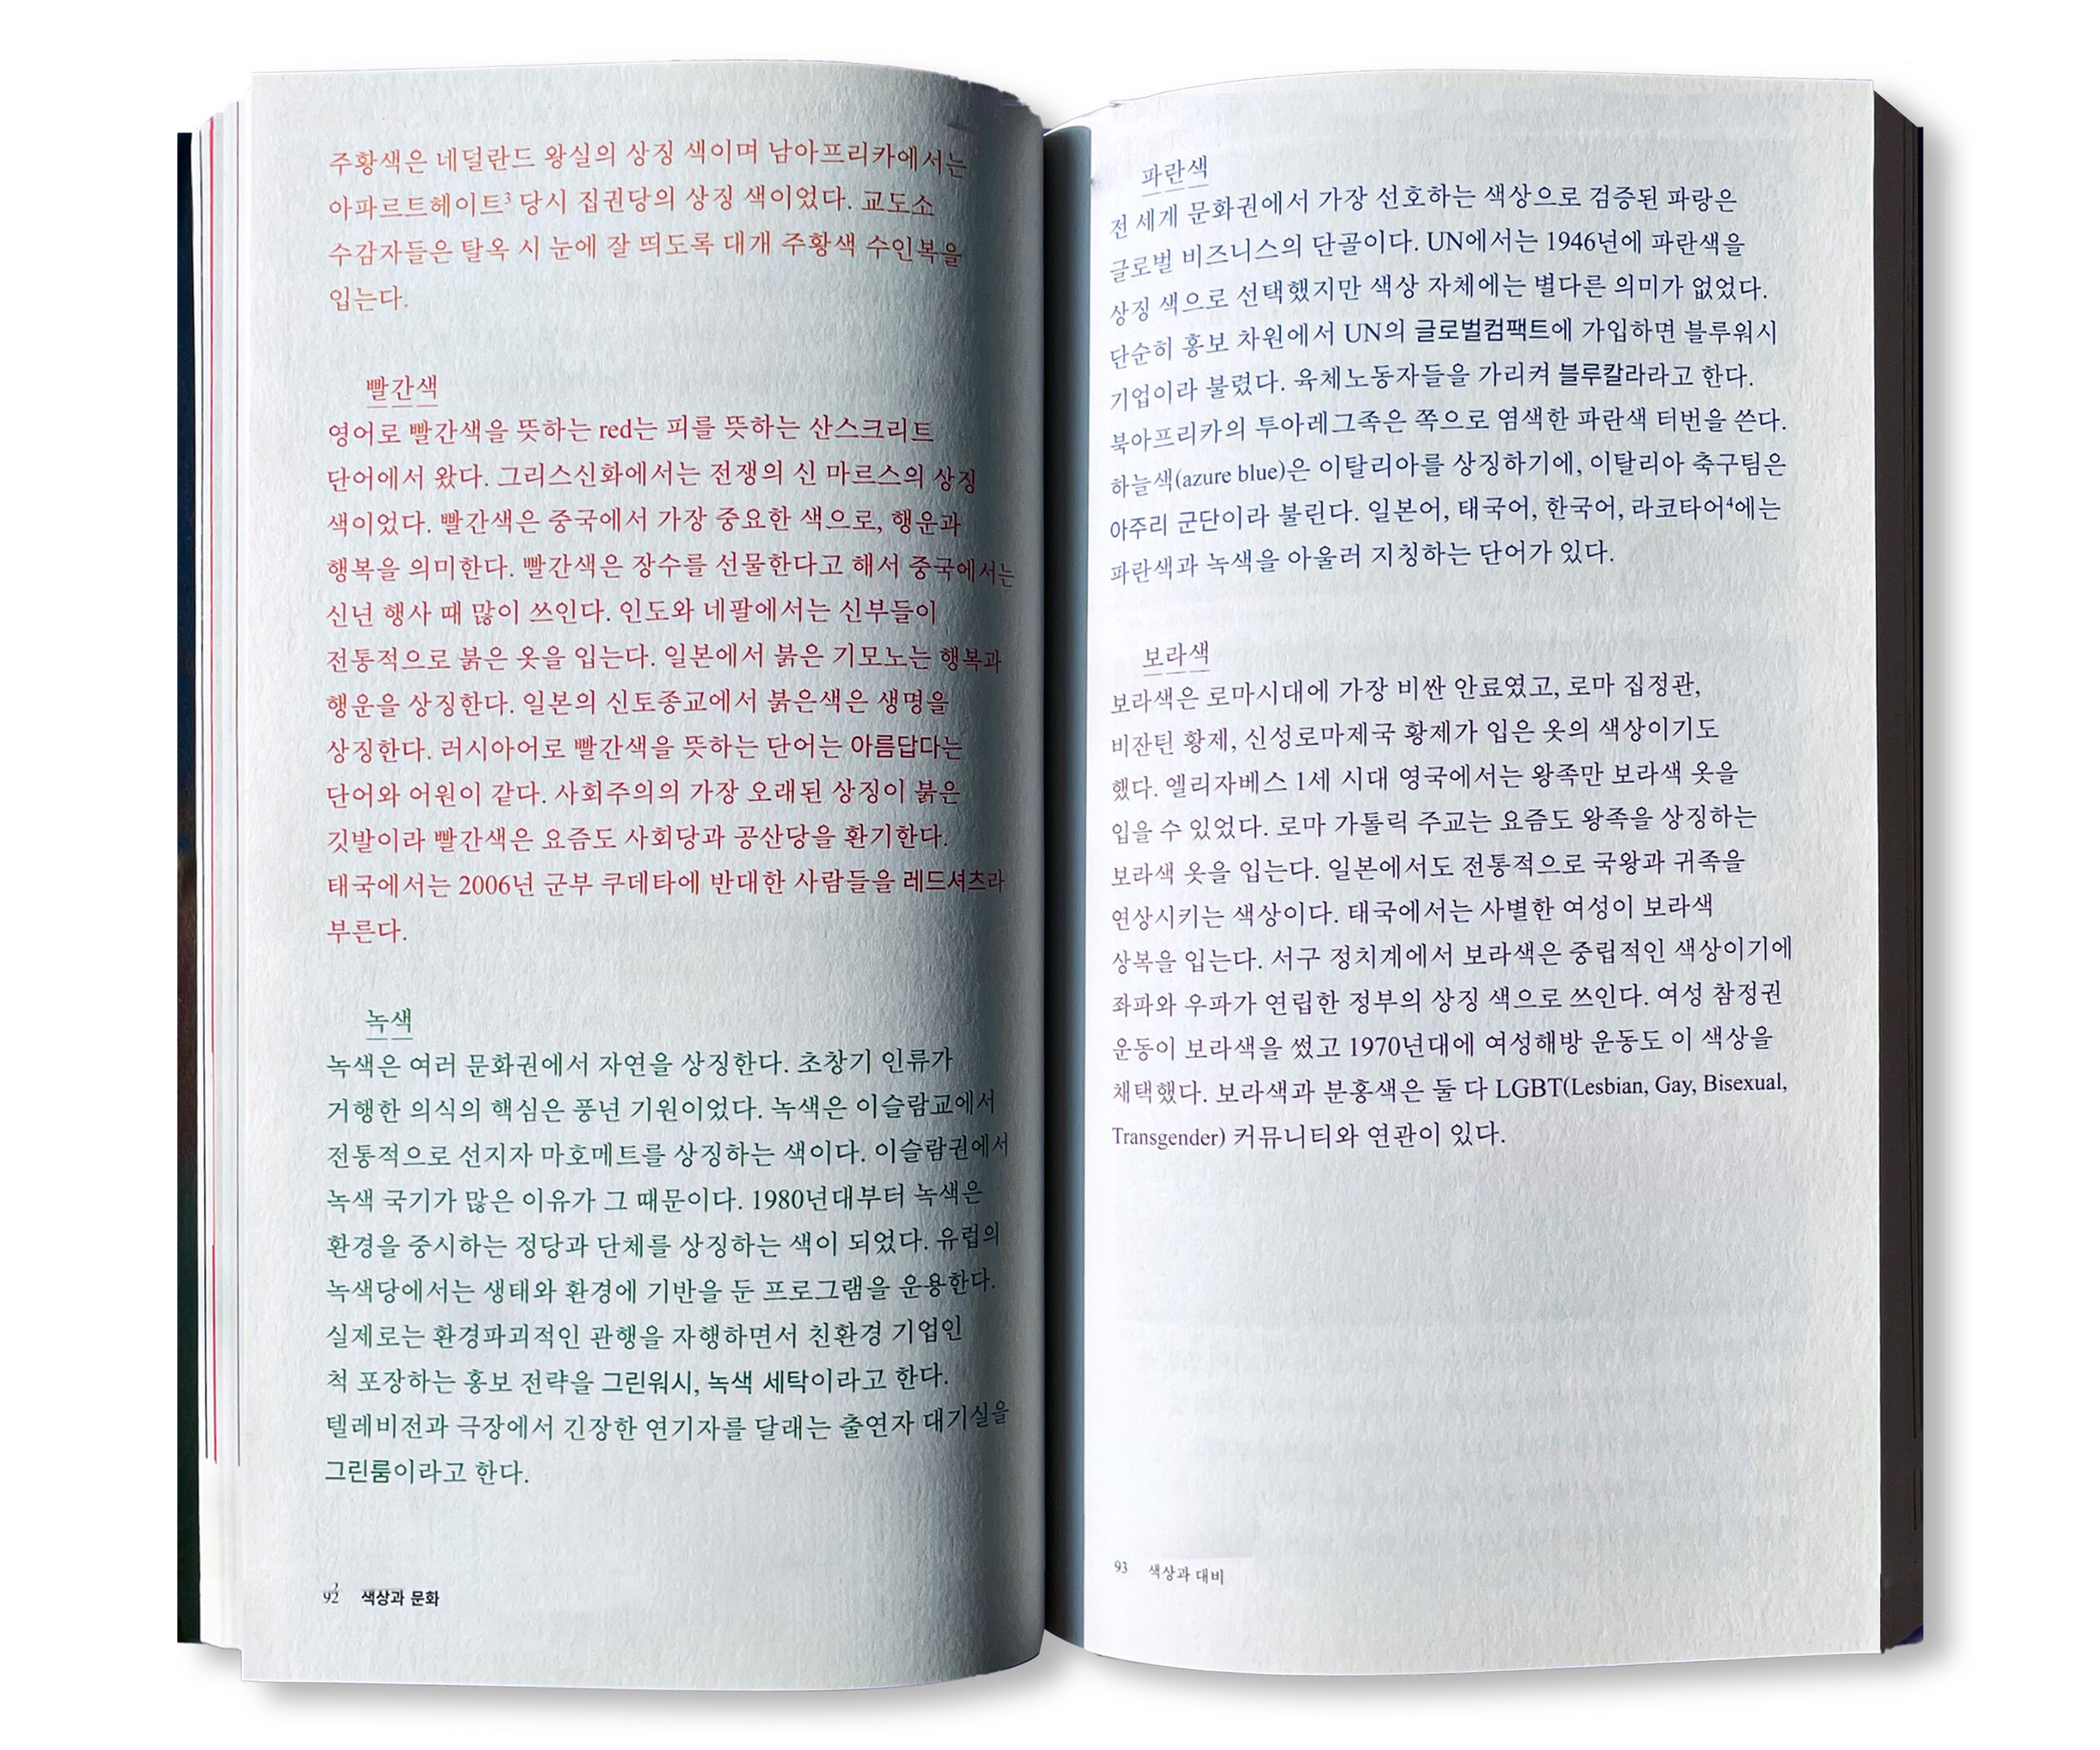 주황색은 네덜란드 왕실의 상징 색이며 남아프리카에서는
아파르트헤이트³ 당시 집권당의 상징 색이었다. 교도소
수감자들은 탈옥 시 눈에 잘 띄도록 대개 주황색 수인복을
입는다.
빨간색
영어로 빨간색을 뜻하는 red는 피를 뜻하는 산스크리트
단어에서 왔다. 그리스신화에서는 전쟁의 신 마르스의 상징
색이었다. 빨간색은 중국에서 가장 중요한 색으로, 행운과
행복을 의미한다. 빨간색은 장수를 선물한다고 해서 중국에서는
신년 행사 때 많이 쓰인다. 인도와 네팔에서는 신부들이
전통적으로 붉은 옷을 입는다. 일본에서 붉은 기모노는 행복과
행운을 상징한다. 일본의 신토종교에서 붉은색은 생명을
상징한다. 러시아어로 빨간색을 뜻하는 단어는 아름답다는
단어와 어원이 같다. 사회주의의 가장 오래된 상징이 붉은
깃발이라 빨간색은 요즘도 사회당과 공산당을 환기한다.
태국에서는 2006년 군부 쿠데타에 반대한 사람들을 레드셔츠라
부른다.
녹색
녹색은 여러 문화권에서 자연을 상징한다. 초창기 인류가
거행한 의식의 핵심은 풍년 기원이었다. 녹색은 이슬람교에서
전통적으로 선지자 마호메트를 상징하는 색이다. 이슬람권에서
녹색 국기가 많은 이유가 그 때문이다. 1980년대부터 녹색은
환경을 중시하는 정당과 단체를 상징하는 색이 되었다. 유럽의
녹색당에서는 생태와 환경에 기반을 둔 프로그램을 운용한다.
실제로는 환경파괴적인 관행을 자행하면서 친환경 기업인
척 포장하는 홍보 전략을 그린워시, 녹색 세탁이라고 한다.
텔레비전과 극장에서 긴장한 연기자를 달래는 출연자 대기실을
그린룸이라고 한다.
92 색상과 문화
파란색
전 세계 문화권에서 가장 선호하는 색상으로 검증된 파랑은
글로벌 비즈니스의 단골이다. UN에서는 1946년에 파란색을
상징 색으로 선택했지만 색상 자체에는 별다른 의미가 없었다.
단순히 홍보 차원에서 UN의 글로벌컴팩트에 가입하면 블루워시
기업이라 불렸다. 육체노동자들을 가리켜 블루칼라라고 한다.
북아프리카의 투아레그족은 쪽으로 염색한 파란색 터번을 쓴다.
하늘색(azure blue)은 이탈리아를 상징하기에, 이탈리아 축구팀은
아주리 군단이라 불린다. 일본어, 태국어, 한국어, 라코타어⁴에는
파란색과 녹색을 아울러 지칭하는 단어가 있다.
보라색
보라색은 로마시대에 가장 비싼 안료였고, 로마 집정관,
비잔틴 황제, 신성로마제국 황제가 입은 옷의 색상이기도
했다. 엘리자베스 1세 시대 영국에서는 왕족만 보라색 옷을
입을 수 있었다. 로마 가톨릭 주교는 요즘도 왕족을 상징하는
보라색 옷을 입는다. 일본에서도 전통적으로 국왕과 귀족을
연상시키는 색상이다. 태국에서는 사별한 여성이 보라색
상복을 입는다. 서구 정치계에서 보라색은 중립적인 색상이기에
좌파와 우파가 연립한 정부의 상징 색으로 쓰인다. 여성 참정권
운동이 보라색을 썼고 1970년대에 여성해방 운동도 이 색상을
채택했다. 보라색과 분홍색은 둘 다 LGBT(Lesbian, Gay, Bisexual,
Transgender) 커뮤니티와 연관이 있다.
93 색상과 대비